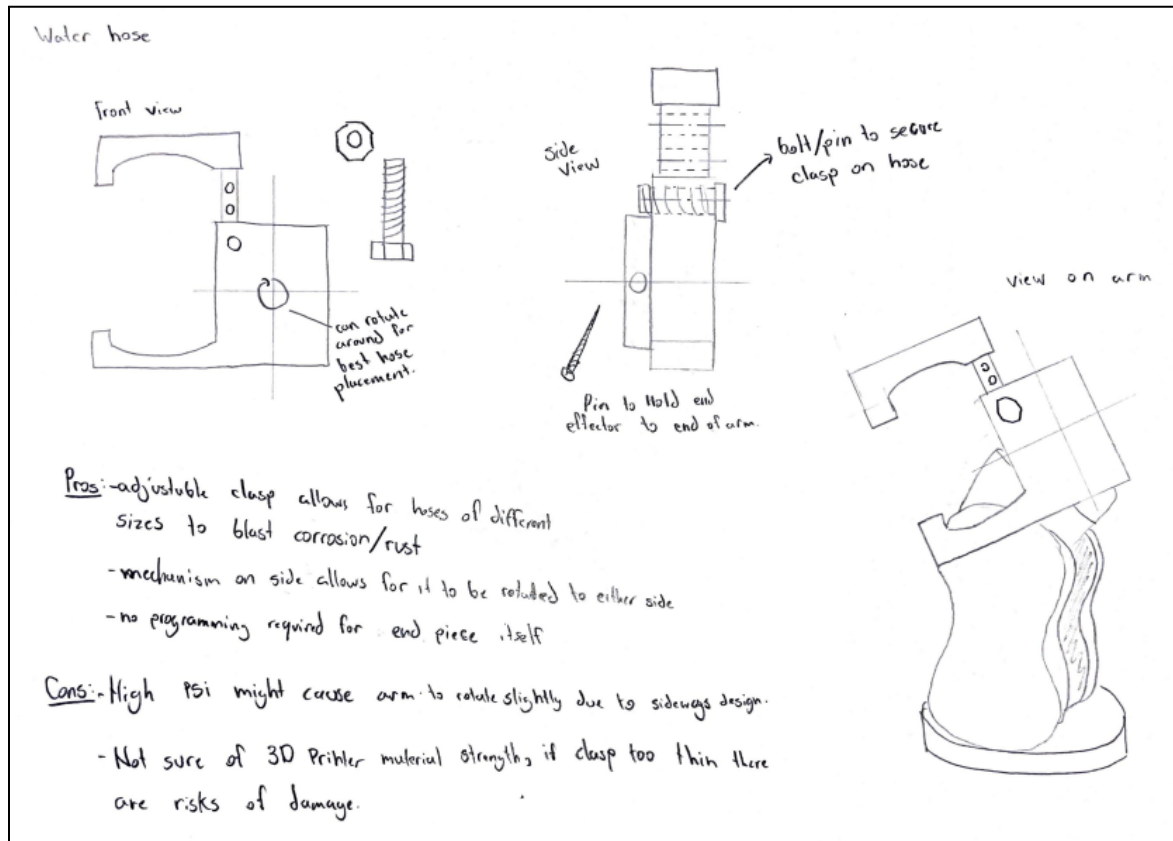 Water hose
Front view
can rotate
around for
best hose
placement.
side
view
bolt/pin to secure
clasp on hose
Pin to Hold end
effector to end of arm.
view on arm
Pros:-adjustable clasp allows for hoses of different
sizes to blast corrosion/rust
-mechanism on side allows for it to be rotated to either side
-no programming required for end piece itself
Cons:-High psi might cause arm to rotate slightly due to sideways design.
-Not sure of 3D Printer material strength, if clasp too thin there
are risks of damage.